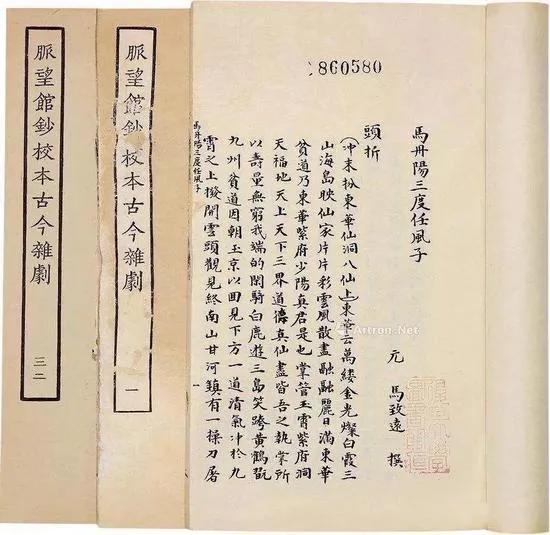 脈望館鈔校本古今雜劇
三二
脈望館鈔校本古今雜劇
一
860580
馬丹陽三度任風子
元 馬致遠 撰
頭折
(冲末扮東華仙洞八仙上東華云萬縷金光燦白霞三
山海島映仙家片片彩雲風散盡融融麗日滿東華
貧道乃東華紫府少陽真君是也掌管玉霄紫府洞
天福地天上天下三界道德真仙盡皆吾之執掌所
以壽量無窮我端的閑騎白鹿遊三島笑跨黃鶴翫
九州貧道因朝玉京以回見下方一道清氣冲於九
霄之上撥開雲頭觀見終南山甘河鎮有一操刀屠
馬丹陽三度任風子
一
Artron.Net